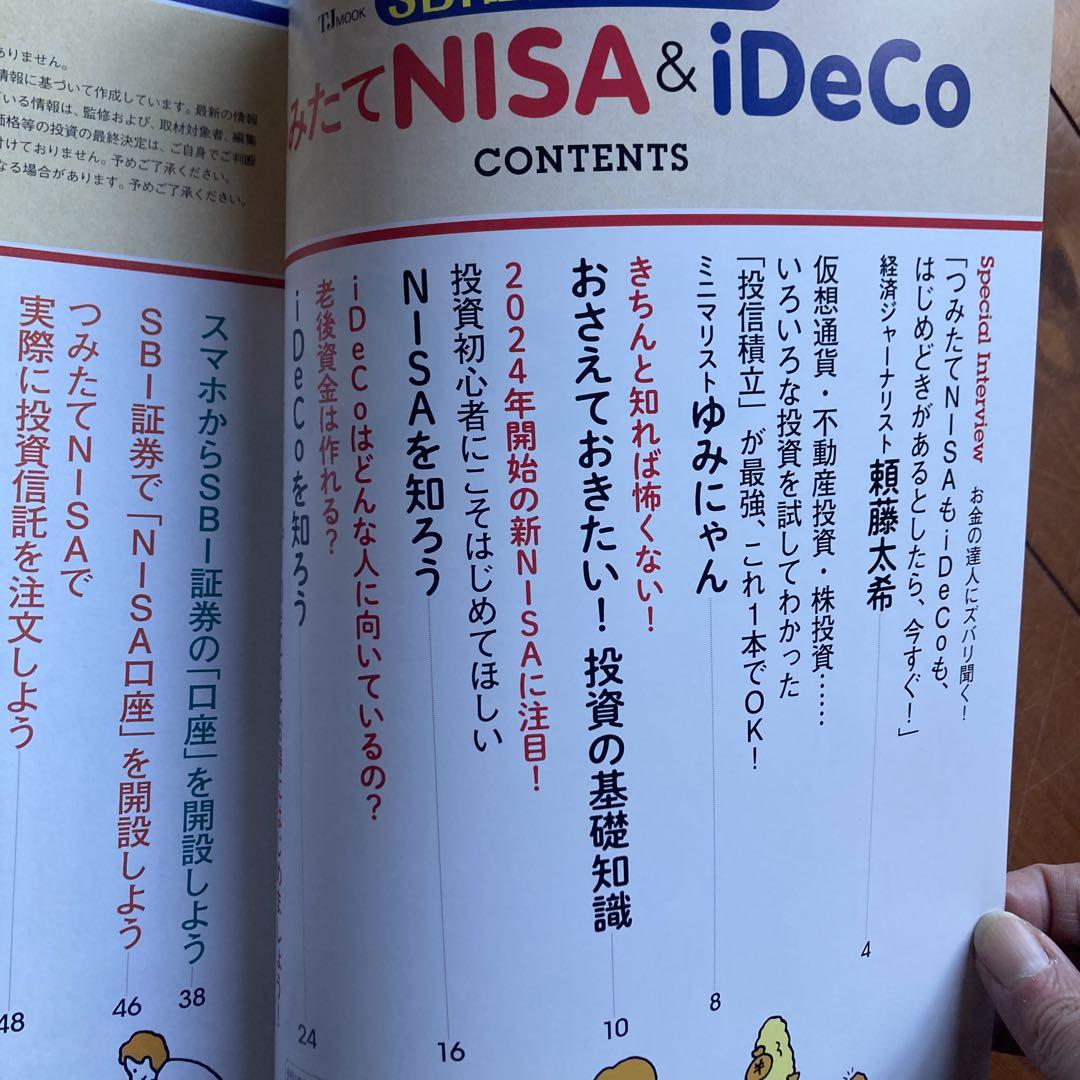 TJMOOK
みたてNISA & iDeCo
CONTENTS
Special Interview お金の達人にズバリ聞く!
「つみたてNISAもiDeCoも、
はじめどきがあるとしたら、今すぐ!」
経済ジャーナリスト 頼藤太希
4
仮想通貨・不動産投資・株投資……
いろいろな投資を試してわかった
「投信積立」が最強、これ1本でOK!
ミニマリスト ゆみにゃん
8
きちんと知れば怖くない!
おさえておきたい! 投資の基礎知識
10
2024年開始の新NISAに注目!
投資初心者にこそはじめてほしい
NISAを知ろう
16
iDeCoはどんな人に向いているの?
老後資金は作れる?
iDeCoを知ろう
24
ありません。
情報に基づいて作成しています。最新の情報
いる情報は、監修および、取材対象者、編集
価格等の投資の最終決定は、ご自身でご判断
付けておりません。予めご了承ください。
なる場合があります。予めご了承ください。
スマホからSBI証券の「口座」を開設しよう
38
SBI証券で「NISA口座」を開設しよう
46
つみたてNISAで
実際に投資信託を注文しよう
48